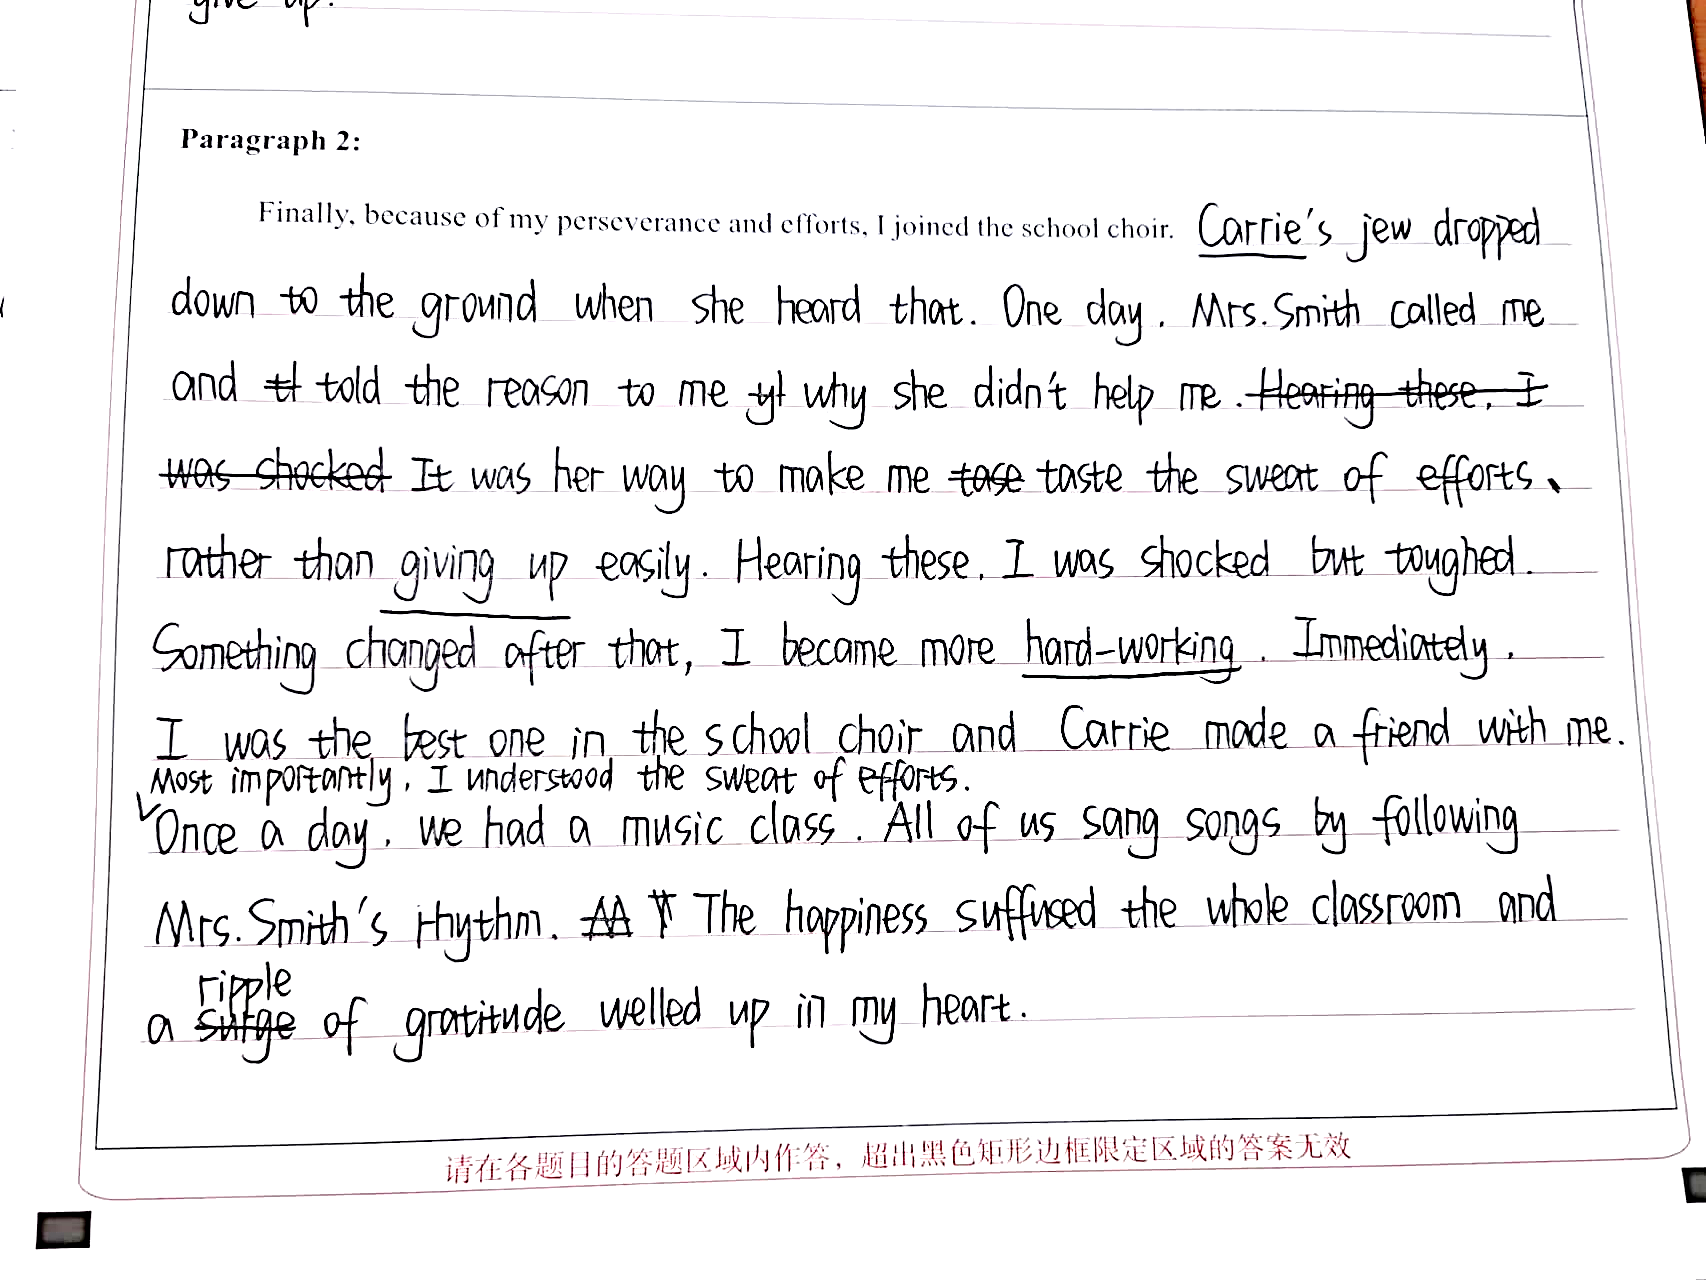 give up.
Paragraph 2:
Finally, because of my perseverance and efforts, I joined the school choir. Carrie's jew dropped
down to the ground when she heard that. One day, Mrs. Smith called me
and told the reason to me why she didn't help me. Hearing these, I
was shocked It was her way to make me tase taste the sweat of efforts,
rather than giving up easily. Hearing these, I was shocked but toughed.
Something changed after that, I became more hard-working. Immediately,
I was the best one in the school choir and Carrie made a friend with me.
Most importantly, I understood the sweat of efforts.
Once a day, we had a music class. All of us sang songs by following
Mrs. Smith's rhythm. The happiness suffused the whole classroom and
ripple
a surge of gratitude welled up in my heart.
请在各题目的答题区域内作答，超出黑色矩形边框限定区域的答案无效